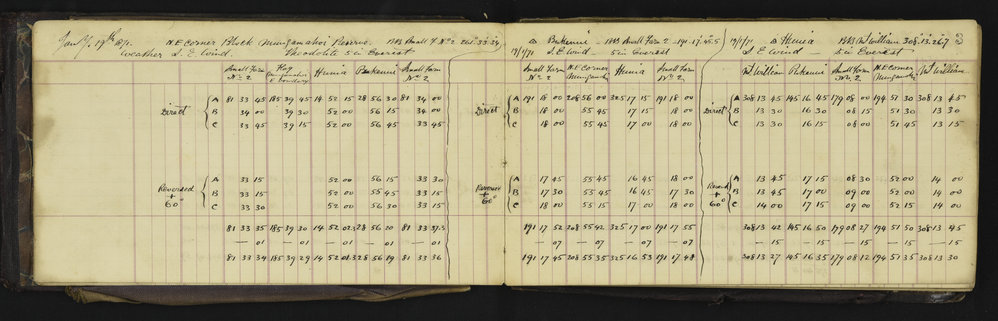 Jany 19th 1871. N.E Corner Block Mungamahoi Reserve BM3 Small F No 2 81.33.34
Weather S. E Wind. Theodolite 5 in Everest
Small Farm No 2 Flag boundary Hunia Pukenui Small Farm No 2
Direct A 81 33 45 185 39 45 14 52 15 28 56 30 81 34 00
B 34 00 39 30 52 00 56 15 34 00
C 33 45 39 15 52 00 56 45 33 45
Reversed + 60° A 33 15 52 00 56 15 33 30
B 33 15 52 00 55 45 33 15
C 33 30 52 00 56 30 33 15
81 33 35 185 39 30 14 52 02 28 56 20 81 33 37.5
— 01 — 01 — 01 — 01 — 01
81 33 34 185 39 29 14 52 01 28 56 19 81 33 36
△ Pukenui — BM3 Small Farm 2 — 191.17.45.5
19/1/71 S. E Wind — 5 in Everest
Small Farm No 2 N.E Corner Hunia Small Farm No 2
Direct A 191 18 00 208 56 00 325 17 15 191 18 00
B 18 00 55 45 17 15 18 00
C 18 00 55 45 17 00 18 00
Reverse + 60° A 17 45 55 45 16 45 18 00
B 17 30 55 45 16 45 17 30
C 18 00 55 15 17 00 18 00
191 17 52 208 55 42 325 17 00 191 17 55
— 07 — 07 — 07 — 07
191 17 45 208 55 35 325 16 53 191 17 48
△ Hunia BM3 Mt William 308.13.26.7 3
19/1/71 S E Wind — 5 in Everest
Mt William Pukenui Small Farm No 2 N.E Corner Mt William
Direct A 308 13 45 145 16 45 179 08 00 194 51 30 308 13 45
B 13 30 16 30 08 15 51 30 13 30
C 13 30 16 15 08 00 51 45 13 15
+ 60° A 13 45 17 15 08 30 52 00 14 00
B 13 45 17 00 09 00 52 00 14 00
C 14 00 17 15 09 00 52 15 14 00
308 13 42 145 16 50 179 08 27 194 51 50 308 13 45
— 15 — 15 — 15 — 15 — 15
308 13 27 145 16 35 179 08 12 194 51 35 308 13 30